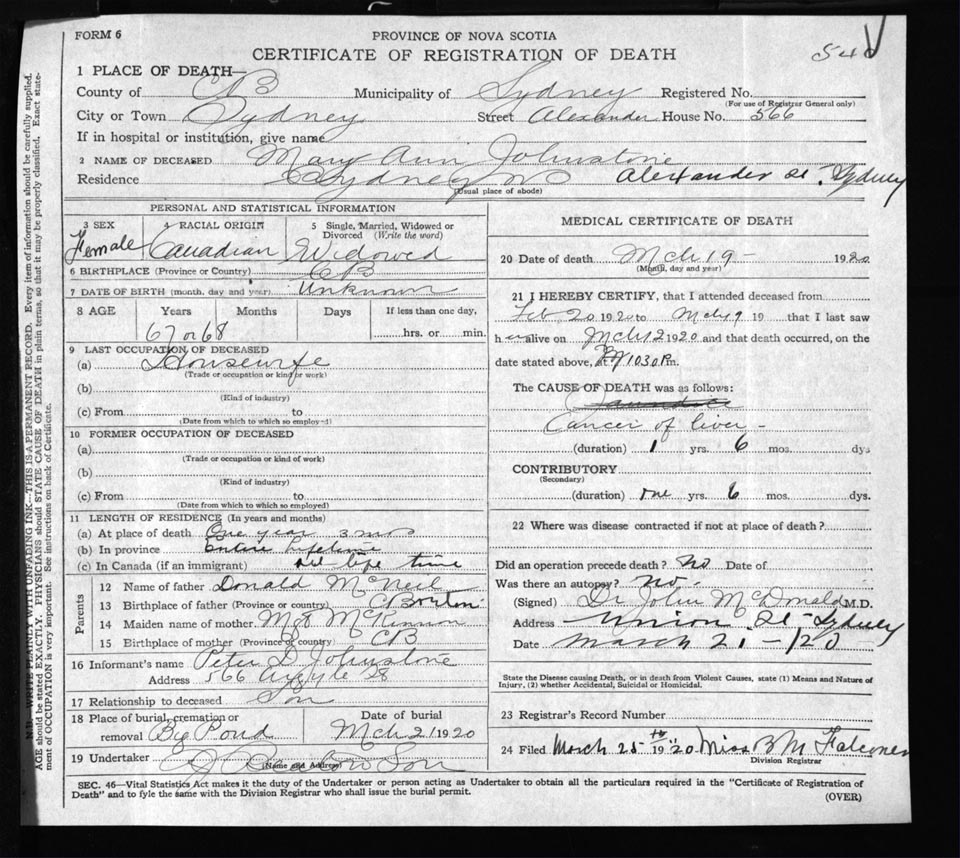 FORM 6
PROVINCE OF NOVA SCOTIA
CERTIFICATE OF REGISTRATION OF DEATH
540
1 PLACE OF DEATH—
County of CB Municipality of Sydney Registered No.
(For use of Registrar General only)
City or Town Sydney Street Alexander House No. 566
If in hospital or institution, give name
2 NAME OF DECEASED Mary Ann Johnstone
Residence Sydney Alexander St. Sydney
(Usual place of abode)
PERSONAL AND STATISTICAL INFORMATION
3 SEX Female
4 RACIAL ORIGIN Canadian
5 Single, Married, Widowed or Divorced (Write the word) Widowed
6 BIRTHPLACE (Province or Country) CB
7 DATE OF BIRTH (month, day and year) Unknown
8 AGE Years Months Days If less than one day,
67 or 68 hrs. or min.
9 LAST OCCUPATION OF DECEASED
(a) Housewife
(Trade or occupation or kind or work)
(b)
(Kind of industry)
(c) From to
(Date from which to which so employed)
10 FORMER OCCUPATION OF DECEASED
(a)
(Trade or occupation or kind of work)
(b)
(Kind of industry)
(c) From to
(Date from which to which so employed)
11 LENGTH OF RESIDENCE (In years and months)
(a) At place of death One year 3 mos
(b) In province Entire Lifetime
(c) In Canada (if an immigrant) life time
Parents
12 Name of father Donald McNeil
13 Birthplace of father (Province or country) C Breton
14 Maiden name of mother McKinnon
15 Birthplace of mother (Province or country) CB
16 Informant's name Peter D Johnstone
Address 566 Argyle St
17 Relationship to deceased Son
18 Place of burial, cremation or removal Big Pond
Date of burial Mch 21 1920
19 Undertaker Son
(Name and Address)
MEDICAL CERTIFICATE OF DEATH
20 Date of death Mch 19 - 1920
(Month, day and year)
21 I HEREBY CERTIFY, that I attended deceased from
Feb 20 1920 to Mch 19 19 that I last saw
her alive on Mch 12 1920 and that death occurred, on the
date stated above, at 10 30 P m.
The CAUSE OF DEATH was as follows:
Jaundice
Cancer of liver -
(duration) 1 yrs. 6 mos. dys
CONTRIBUTORY
(Secondary)
(duration) one yrs. 6 mos. dys.
22 Where was disease contracted if not at place of death?
Did an operation precede death? No Date of
Was there an autopsy? No.
(Signed) Dr John McDonald M.D.
Address Union St - Sydney
Date March 21 - /20
State the Disease causing Death, or in death from Violent Causes, state (1) Means and Nature of
Injury, (2) whether Accidental, Suicidal or Homicidal.
23 Registrar's Record Number
24 Filed March 25th 1920 Miss B M Falconer
Division Registrar
SEC. 46—Vital Statistics Act makes it the duty of the Undertaker or person acting as Undertaker to obtain all the particulars required in the "Certificate of Registration of
Death" and to fyle the same with the Division Registrar who shall issue the burial permit.
(OVER)
N.B.—WRITE PLAINLY WITH UNFADING INK—THIS IS A PERMANENT RECORD. Every item of information should be carefully supplied.
AGE should be stated EXACTLY. PHYSICIANS should STATE CAUSE OF DEATH in plain terms, so that it may be properly classified. Exact state-
ment of OCCUPATION is very important. See instructions on back of Certificate.